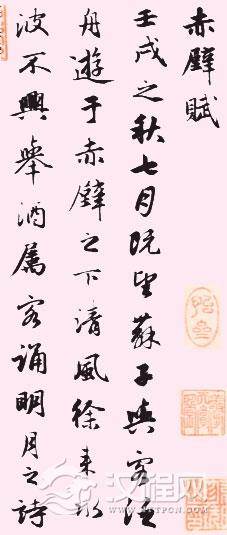 赤壁賦
壬戌之秋七月既望蘇子與客泛
舟遊于赤壁之下清風徐来水
波不興舉酒属客誦明月之詩
汉程网